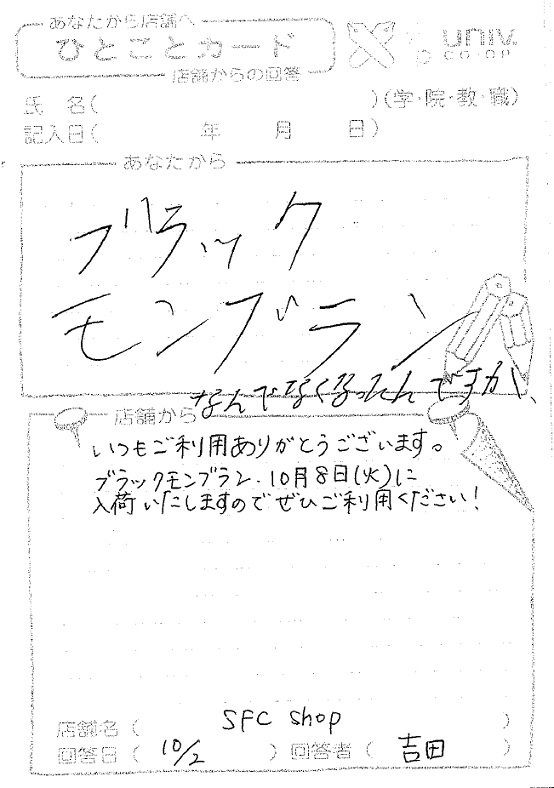 あなたから店舗へ
ひとことカード
店舗からの回答
univ.
CO-OP
氏 名( )(学・院・教・職)
記入日( 年 月 日)
あなたから
ブラック
モンブラン
なんでなくなったんですか、
店舗から
いつもご利用ありがとうございます。
ブラックモンブラン、10月8日(火)に
入荷いたしますのでぜひご利用ください!
店舗名( SFC shop )
回答日( 10/2 ) 回答者( 吉田 )